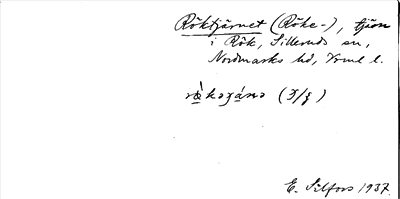 Röktjärnet (Röke-), tjärn
i Rök, Sillerud sn,
Nordmarks hd, Vrml l.
E. Silfors 1937.